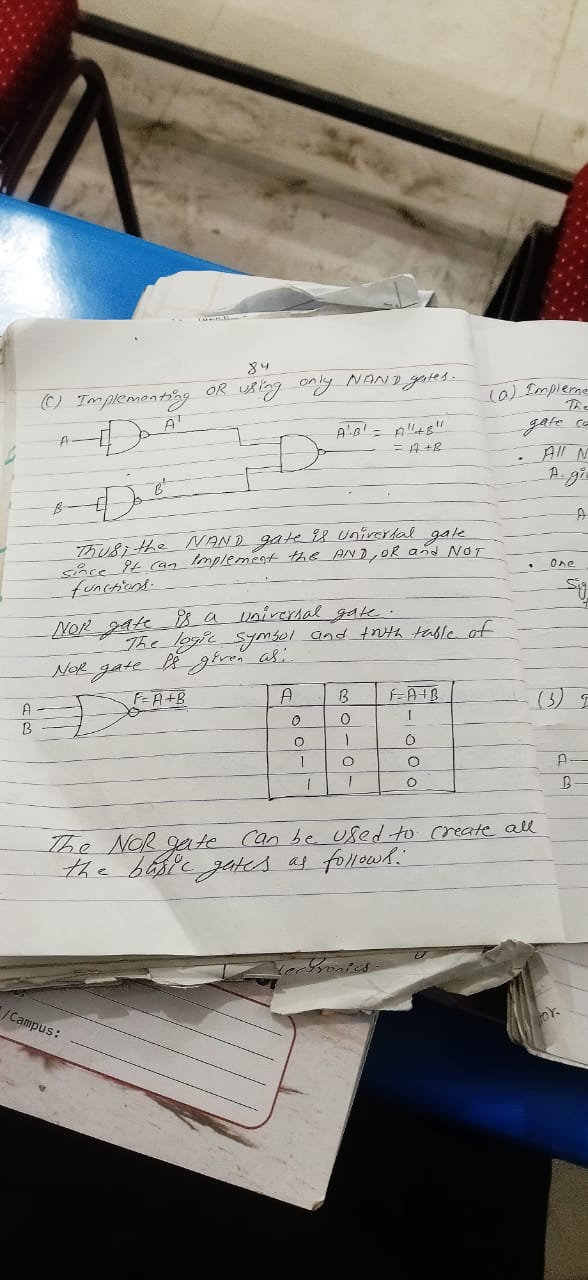 84
(C) Implementing OR using only NAND gates.
A
A'
B
B'
A'.B' = A''+B''
= A+B
Thus, the NAND gate is universal gate
since it can implement the AND, OR and NOT
functions.
NOR gate is a universal gate.
The logic symbol and truth table of
NOR gate is given as:
A
B
F=A+B
A B F=A+B
0 0 1
0 1 0
1 0 0
1 1 0
The NOR gate can be used to create all
the basic gates as follows:
(a)
gate
All
A.
A
one
(b)
A
B
lectronics
/Campus: